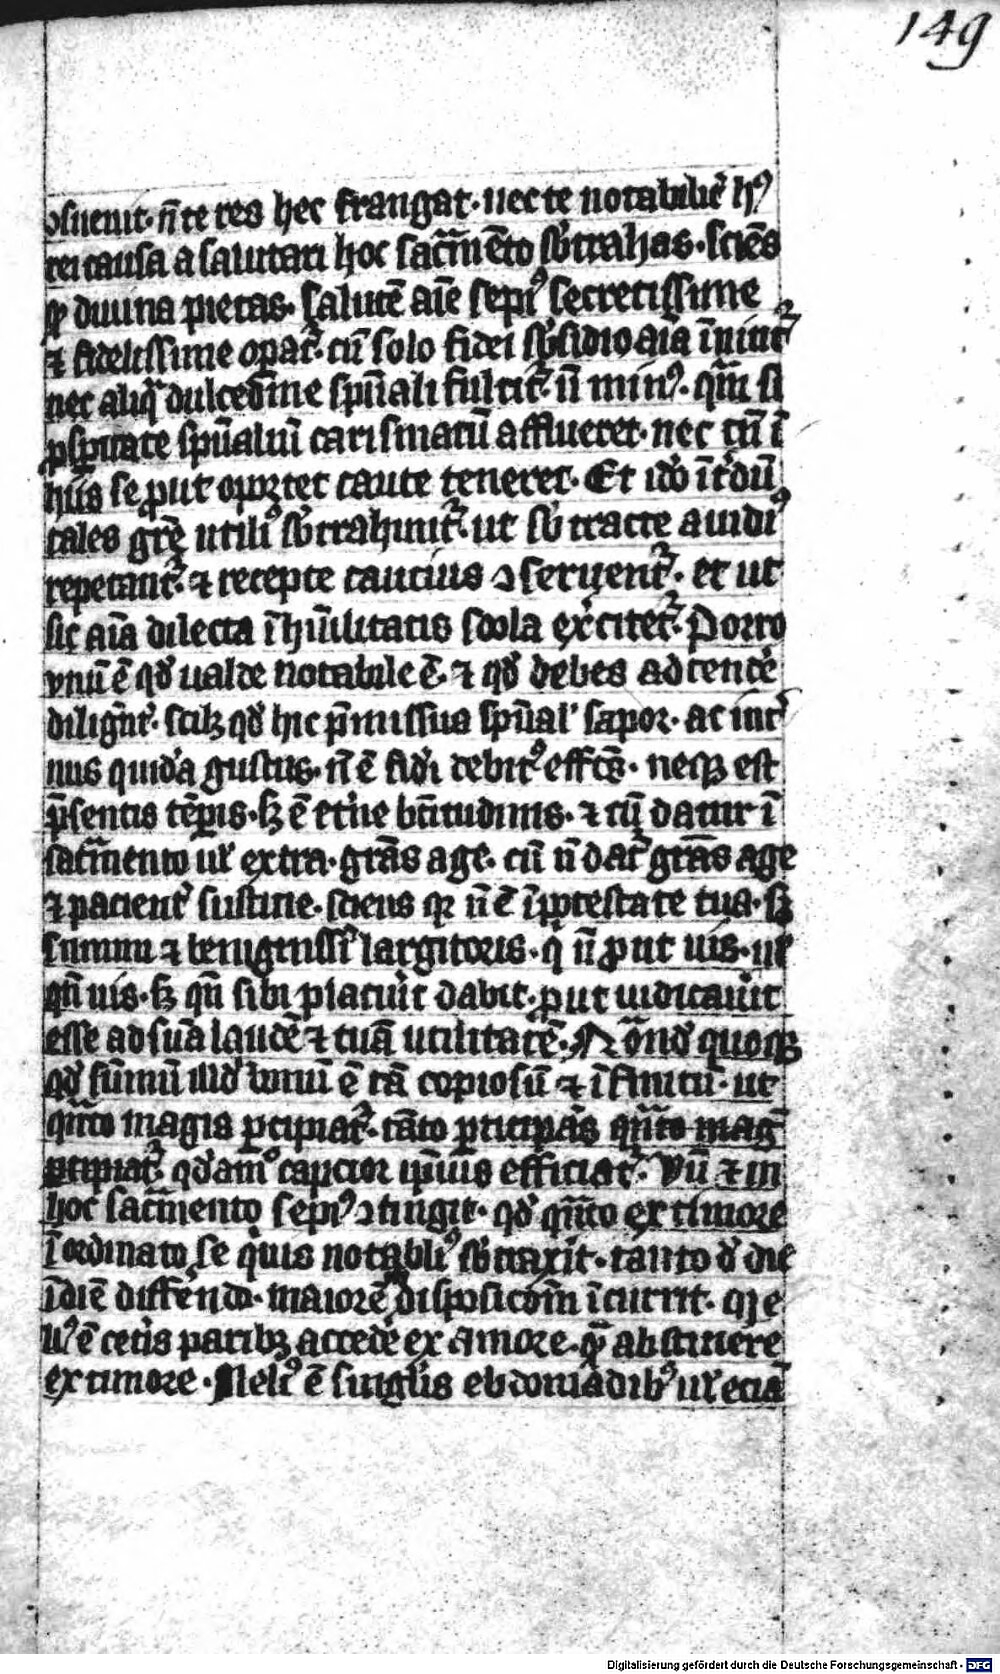 149
ↄsueuit. n̄ te res hec frangat. nec te notabilit̾ hꝰ
rei causa a salutari hoc sac̄mēto sb̾trahas. sciēs
ꝙ diuina pietas. salutē aīe sepiꝰ secretissime
⁊ fidelissime opat᷑. cū solo fidei sb̾sidio aīa īnitit᷑
nec aliq̾ dulcedīne spūali fulcit᷑. n̄ minꝰ. qm̄ si
ꝓspitate spūaluī carismatū afflueret. nec tn̄ ī
hiis se ꝓut oportet caute teneret. Et idō īt̾dū
tales grē utiliꝰ sb̾trahunt᷑. ut sb̾tracte auidiꝰ
repetant᷑. ⁊ recepte caucius ↄseruent᷑. et ut
sic aīa dilecta ī hūilitatis scola excitet᷑. Porro
vnū ē qd̾ ualde notabile ē. ⁊ qd̾ debes adtendē
diligēt̾. scilꝫ qd̾ hic p̄missus spūal' sapor. ac int̾
nus quidā gustus. n̄ ē fidi debitꝰ effc̄s. neqꝫ est
p̄sentis tēpis. sꝫ ē et̾ne bt̄itudinis. ⁊ cū datur ī
sac̄mento ul̾ extra. grās age. cū n̄ dat᷑ grās age
⁊ pacient̾ sustine. sciens qꝛ n̄ ē ī potestate tua. sꝫ
summi ⁊ benignissi largitoris. q̾ n̄ ꝓut uis. ul̾
qn̄ uis. sꝫ qn̄ sibi placuit dabit. ꝓut iudicauit
esse ad suā laudē ⁊ tuā utilitatē. Nōnd̾ quoqꝫ
qd̾ sūmū illd̾ bonū ē tā copiosū ⁊ īfinitū. ut
qn̄to magis ꝑcipiat᷑. tāto ꝑticipās qn̄to mag̾
ꝑcipiat᷑. qd̾āmᵒ capcior ipsius efficiat᷑. Vn̄ ⁊ in
hoc sac̄mento sepiꝰ ↄtingit. qd̾ qn̄to ex timore
īordinato se quis notabliꝰ sb̾traxit. tanto d̾ die
ī diē differendo. maiorē ī disposicōm īcurrit. qꝛ e
uꝰ ē cet̾is paribꝫ accedē ex amore. ꝙ̄ abstinere
ex timore. Meliꝰ ē singlis ebdomadibꝰ ul̾ eciā
Digitalisierung gefördert durch die Deutsche Forschungsgemeinschaft - DFG